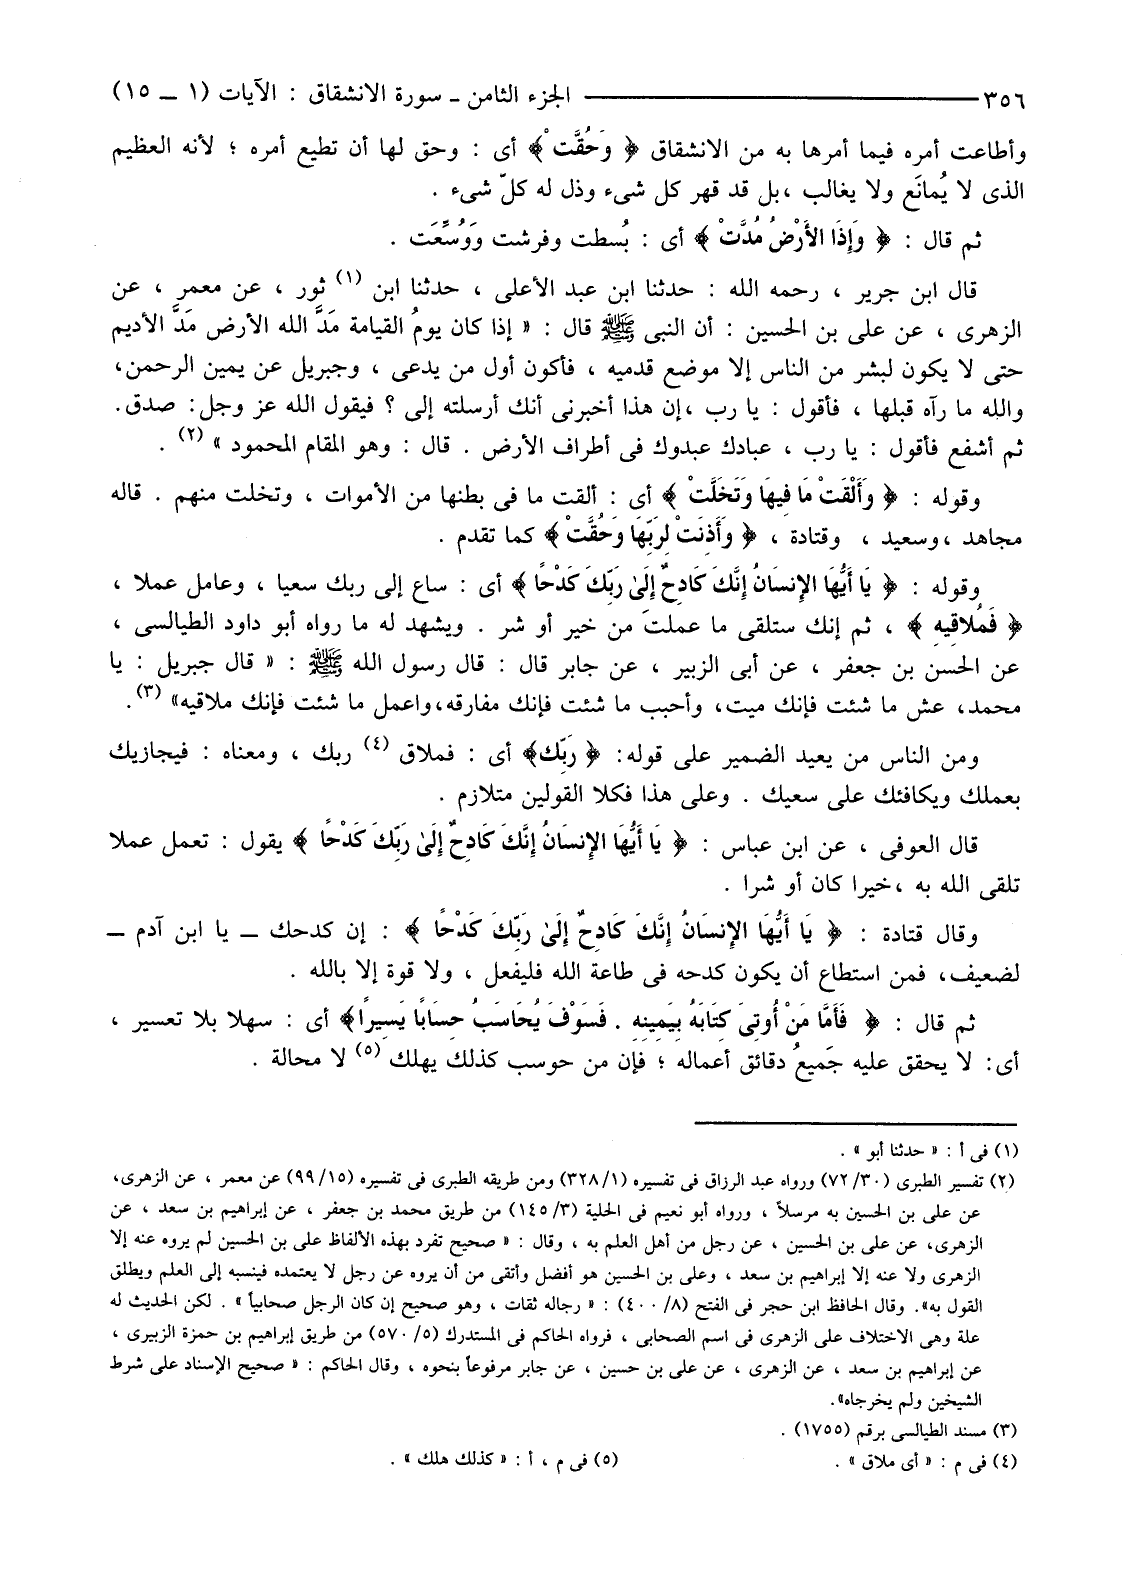 ٣٥٦ ــــــــــــ الجزء الثامن ـ سورة الانشقاق : الآيات (١ ــ ١٥)
وأطاعت أمره فيما أمرها به من الانشقاق ﴿ وَحُقَّتْ ﴾ أى : وحق لها أن تطيع أمره ؛ لأنه العظيم
الذى لا يُمانَع ولا يغالب ،بل قد قهر كل شىء وذل له كلّ شىء .
ثم قال : ﴿ وَإِذَا الأَرْضُ مُدَّتْ ﴾ أى : بُسطت وفرشت وَوُسِّعَت .
قال ابن جرير ، رحمه الله : حدثنا ابن عبد الأعلى ، حدثنا ابن (١) ثور ، عن معمر ، عن
الزهرى ، عن على بن الحسين : أن النبى ﷺ قال : « إذا كان يومُ القيامة مَدَّ الله الأرض مَدَّ الأديم
حتى لا يكون لبشر من الناس إلا موضع قدميه ، فأكون أول من يدعى ، وجبريل عن يمين الرحمن،
والله ما رآه قبلها ، فأقول : يا رب ،إن هذا أخبرنى أنك أرسلته إلى ؟ فيقول الله عز وجل: صدق.
ثم أشفع فأقول : يا رب ، عبادك عبدوك فى أطراف الأرض . قال : وهو المقام المحمود » (٢) .
وقوله : ﴿ وَأَلْقَتْ مَا فِيهَا وَتَخَلَّتْ ﴾ أى : ألقت ما فى بطنها من الأموات ، وتخلت منهم . قاله
مجاهد ،وسعيد ، وقتادة ، ﴿ وَأَذِنَتْ لِرَبِّهَا وَحُقَّتْ ﴾ كما تقدم .
وقوله : ﴿ يَا أَيُّهَا الإِنسَانُ إِنَّكَ كَادِحٌ إِلَىٰ رَبِّكَ كَدْحًا ﴾ أى : ساع إلى ربك سعيا ، وعامل عملا ،
﴿ فَمُلاقِيهِ ﴾ ، ثم إنك ستلقى ما عملتَ من خير أو شر . ويشهد له ما رواه أبو داود الطيالسى ،
عن الحسن بن جعفر ، عن أبى الزبير ، عن جابر قال : قال رسول الله ﷺ : « قال جبريل : يا
محمد، عش ما شئت فإنك ميت، وأحبب ما شئت فإنك مفارقه،واعمل ما شئت فإنك ملاقيه» (٣).
ومن الناس من يعيد الضمير على قوله: ﴿ رَبِّكَ﴾ أى : فملاق (٤) ربك ، ومعناه : فيجازيك
بعملك ويكافئك على سعيك . وعلى هذا فكلا القولين متلازم .
قال العوفى ، عن ابن عباس : ﴿ يَا أَيُّهَا الإِنسَانُ إِنَّكَ كَادِحٌ إِلَىٰ رَبِّكَ كَدْحًا ﴾ يقول : تعمل عملا
تلقى الله به ،خيرا كان أو شرا .
وقال قتادة : ﴿ يَا أَيُّهَا الإِنسَانُ إِنَّكَ كَادِحٌ إِلَىٰ رَبِّكَ كَدْحًا ﴾ : إن كدحك ــ يا ابن آدم ــ
لضعيف، فمن استطاع أن يكون كدحه فى طاعة الله فليفعل ، ولا قوة إلا بالله .
ثم قال : ﴿ فَأَمَّا مَنْ أُوتِىَ كِتَابَهُ بِيَمِينِهِ . فَسَوْفَ يُحَاسَبُ حِسَابًا يَسِيرًا﴾ أى : سهلا بلا تعسير ،
أى: لا يحقق عليه جَميعُ دقائق أعماله ؛ فإن من حوسب كذلك يهلك (٥) لا محالة .
(١) فى أ : « حدثنا أبو » .
(٢) تفسير الطبرى (٧٢/٣٠) ورواه عبد الرزاق فى تفسيره (٣٢٨/١) ومن طريقه الطبرى فى تفسيره (٩٩/١٥) عن معمر ، عن الزهرى،
عن على بن الحسين به مرسلاً ، ورواه أبو نعيم فى الحلية (١٤٥/٣) من طريق محمد بن جعفر ، عن إبراهيم بن سعد ، عن
الزهرى، عن على بن الحسين ، عن رجل من أهل العلم به ، وقال : « صحيح تفرد بهذه الألفاظ على بن الحسين لم يروه عنه إلا
الزهرى ولا عنه إلا إبراهيم بن سعد ، وعلى بن الحسين هو أفضل وأتقى من أن يروه عن رجل لا يعتمده فينسبه إلى العلم ويطلق
القول به». وقال الحافظ ابن حجر فى الفتح (٤٠٠/٨) : « رجاله ثقات ، وهو صحيح إن كان الرجل صحابياً » . لكن الحديث له
علة وهى الاختلاف على الزهرى فى اسم الصحابى ، فرواه الحاكم فى المستدرك (٥٧٠/٥) من طريق إبراهيم بن حمزة الزبيرى ،
عن إبراهيم بن سعد ، عن الزهرى ، عن على بن حسين ، عن جابر مرفوعاً بنحوه ، وقال الحاكم : « صحيح الإسناد على شرط
الشيخين ولم يخرجاه».
(٣) مسند الطيالسى برقم (١٧٥٥) .
(٤) فى م : « أى ملاق » . (٥) فى م ، أ : « كذلك هلك » .